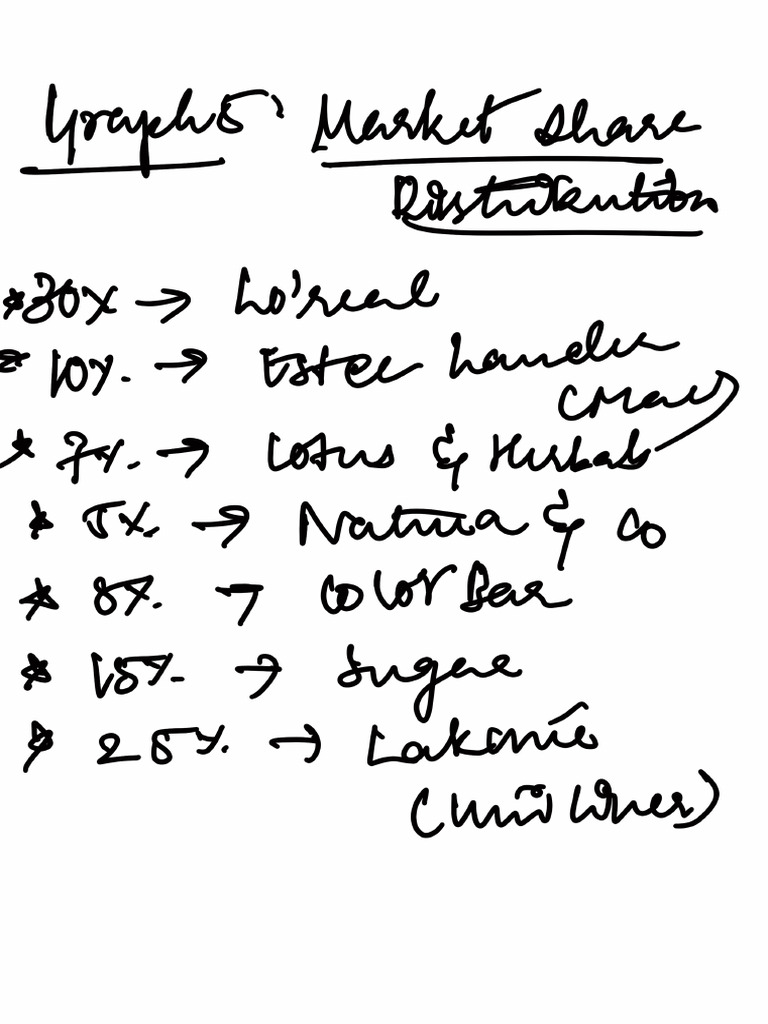 Graph 5: Market Share
Distribution
* 30% → Lo'real
* 10% → Estee Lauder
(Mac)
* 7% → Lotus & Herbals
* 5% → Natura & Co
* 8% → Color Bar
* 15% → Sugar
* 25% → Lakmé
(Unilever)